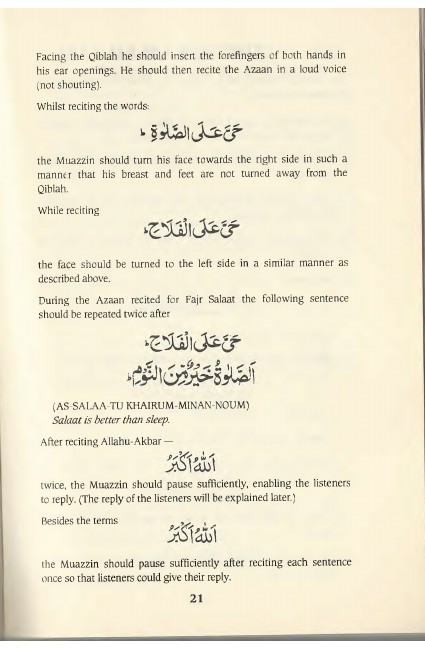 Facing the Qiblah he should insert the forefingers of both hands in
his ear openings. He should then recite the Azaan in a loud voice
(not shouting).
Whilst reciting the words:
حَيَّ عَلَى الصَّلٰوةِ ط
the Muazzin should turn his face towards the right side in such a
manner that his breast and feet are not turned away from the
Qiblah.
While reciting
حَيَّ عَلَى الْفَلَاحِ ط
the face should be turned to the left side in a similar manner as
described above.
During the Azaan recited for Fajr Salaat the following sentence
should be repeated twice after
حَيَّ عَلَى الْفَلَاحِ ط
اَلصَّلٰوةُ خَيْرٌ مِّنَ النَّوْمِ ط
(AS-SALAA-TU KHAIRUM-MINAN-NOUM)
Salaat is better than sleep.
After reciting Allahu-Akbar —
اَللّٰهُ اَكْبَرُ
twice, the Muazzin should pause sufficiently, enabling the listeners
to reply. (The reply of the listeners will be explained later.)
Besides the terms
اَللّٰهُ اَكْبَرُ
the Muazzin should pause sufficiently after reciting each sentence
once so that listeners could give their reply.
21